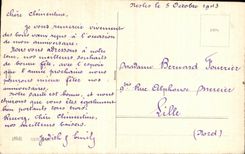 Nesles le 5 Octobre 1913
Chère Clémentine,
Je vous remercie vivement
des bons vœux reçus à l'occasion
de mon anniversaire.
Nous vous adressons à notre
tour, nos meilleurs souhaits
de bonne fête, avec l'espoir
que l'année prochaine nous
pourrons mieux fêter nos
anniversaires.
Notre santé est bonne, et nous
espérons que vous êtes également
bien portants tous trois.
Recevez, chère Clémentine,
nos meilleurs baisers.
Judith Emily
Madame Bernard
Rue Alphonse Mercier
Lille
(Nord)